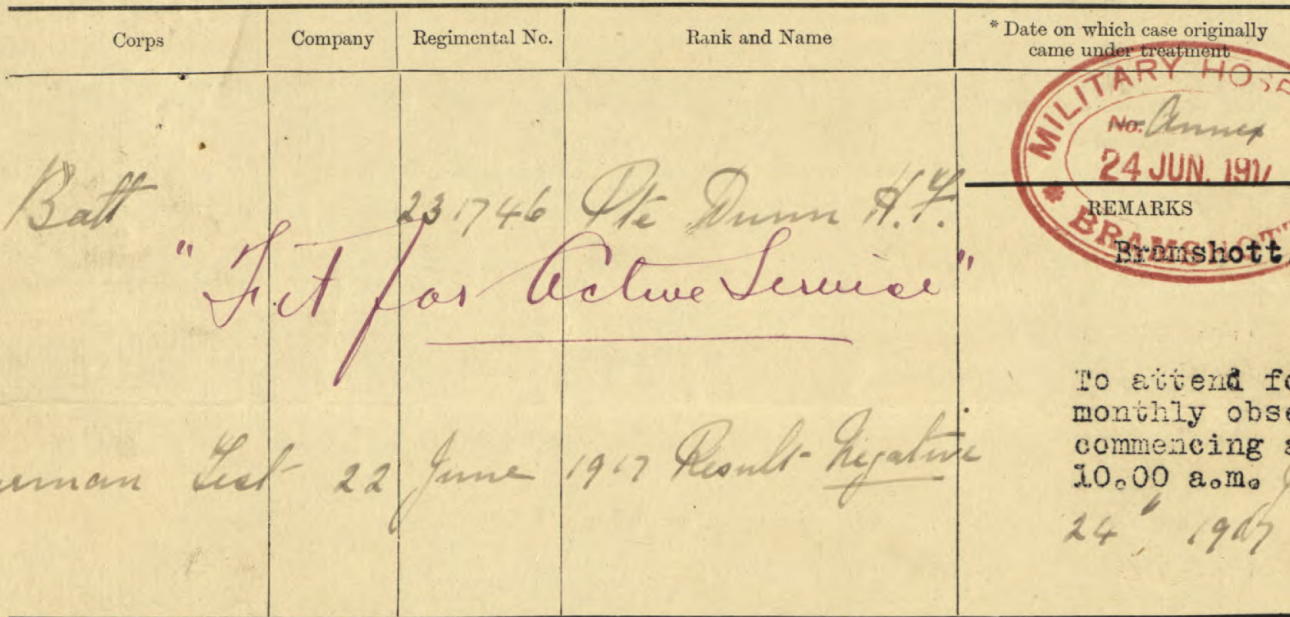 Corps Company Regimental No. Rank and Name * Date on which case originally came under treatment
MILITARY HOSP
No. Annex
24 JUN. 191
BRAMSHOTT
Batt 231746 Pte Dunn H.F.
REMARKS
Bramshott
"Fit for Active Service"
To attend fo
monthly obse
commencing a
10.00 a.m.
24" 1917
erman Test 22 June 1917 Result - Negative